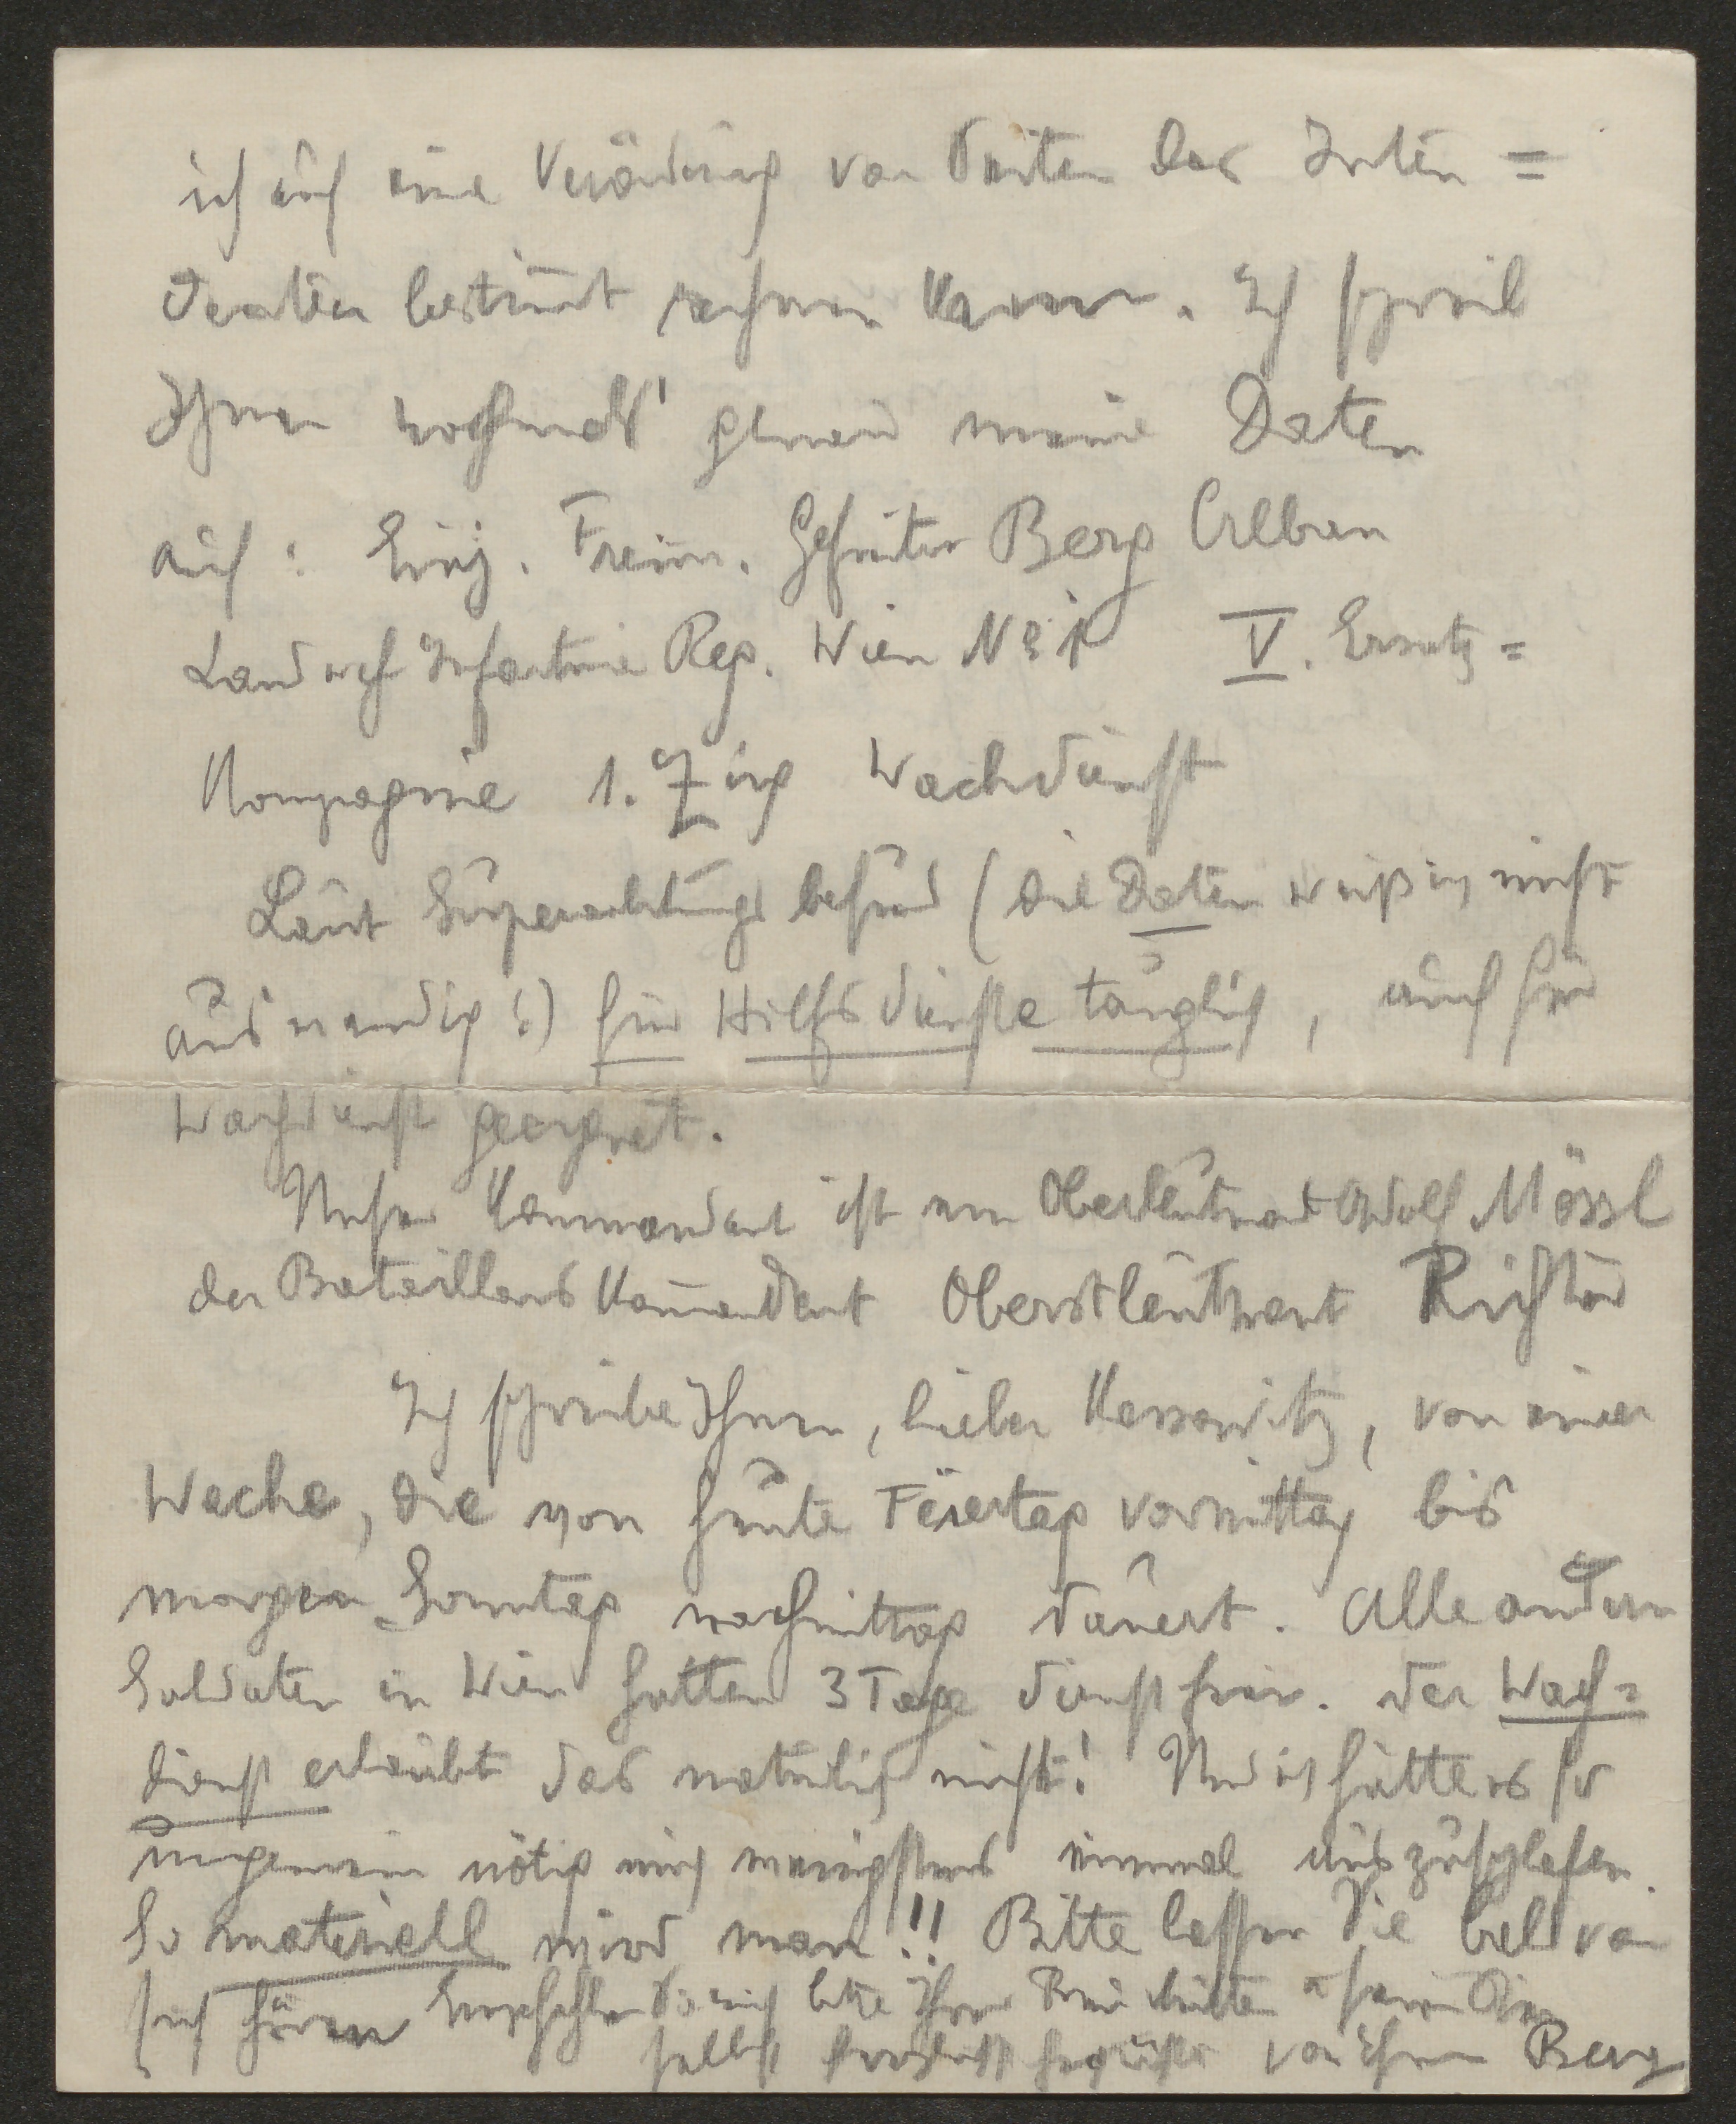 ich auf eine Verändrung von Seiten der Inten=
danten bestim̄t rechnen kann. Ich schreib
Ihnen nochmals genau meine Daten
auf: Einj. Freiw. Gefreiter Berg Alban
Landwehr Infanterie Reg. Wien № 1 V. Ersatz=
Kompagnie 1. Zug Wachdienst
Laut Superarbitrirungsbefund (die Daten weiß ich nicht
auswendig!) für Hilfsdienste tauglich, auch für
Wachdienst geeignet.
Unser Kommandant ist ein Oberleutnant Adolf Mössl
der Bataillons Kom̄andant Oberstleutnant Richter
Ich schreibe Ihnen, lieber Kassowitz, von einer
Wache, die von heute Feiertag vormittag bis
morgen Sonntag nachmittag dauert. Alle andern
Soldaten in Wien hatten 3 Tage dienstfrei. Der Wach=
dienst erlaubt das natürlich nicht! Und ich hätte es so
ungemein nötig mich wenigstens einmal auszuschlafen.
So materiell wird man!! Bitte lassen Sie bald von
sich hören Empfehlen Sie mich bitte Ihrer
selbst herzlichst gegrüßt von Ihrem Berg